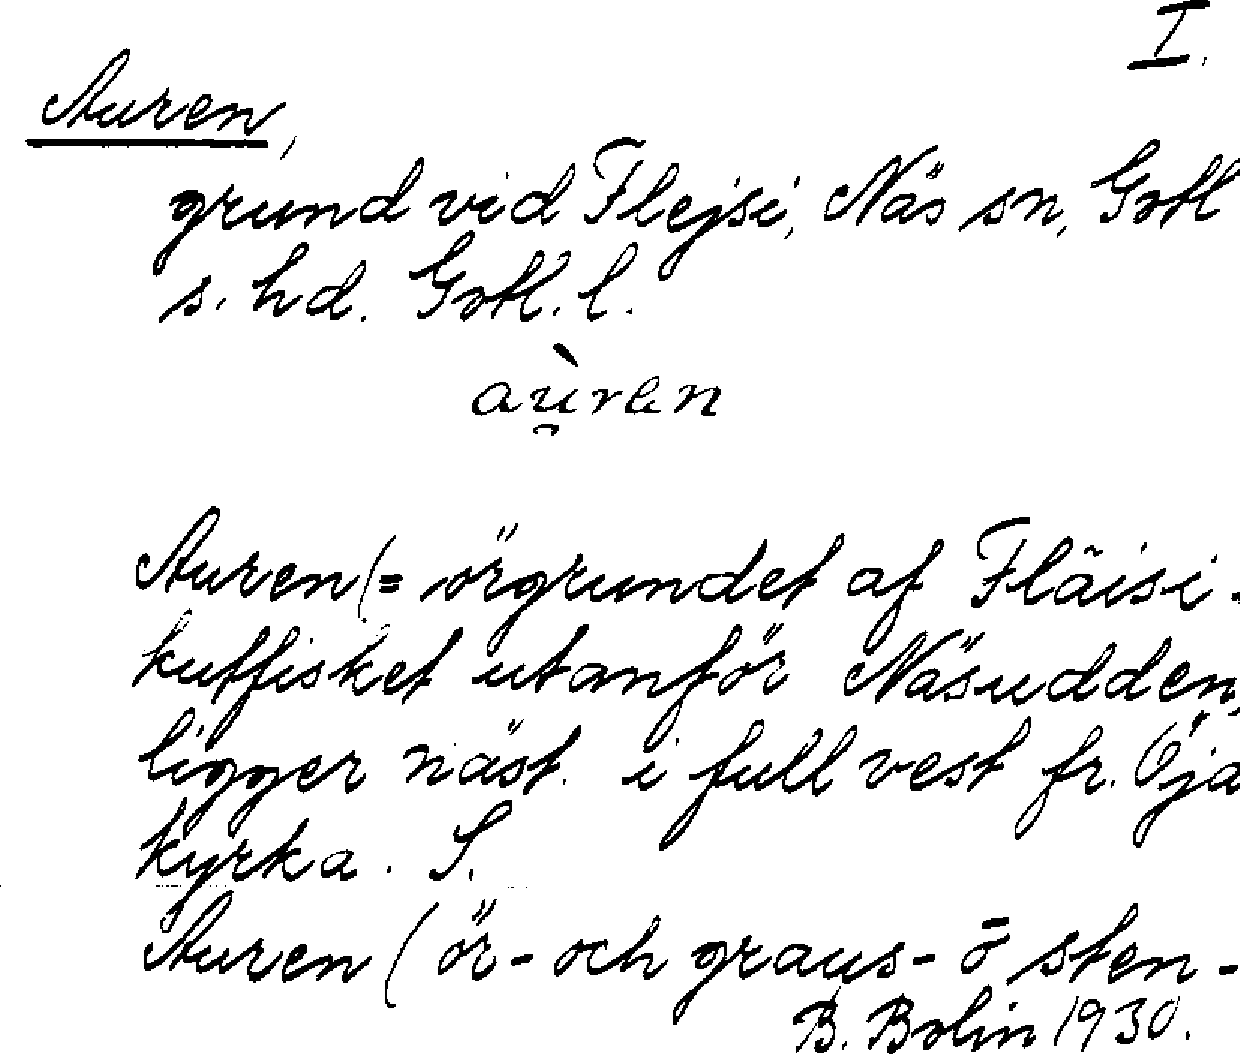 I.
Auren,
grund vid Flejsi, Näs sn, Gotl
s. hd. Gotl. l.
aù̯ren
Auren (= örgrundet af Fläisi-
kutfisket utanför Näsudden,
ligger näst. i full vest fr. Öja
kyrka. S.
Auren (ör- och graus- ō sten-
B. Bolin 1930.